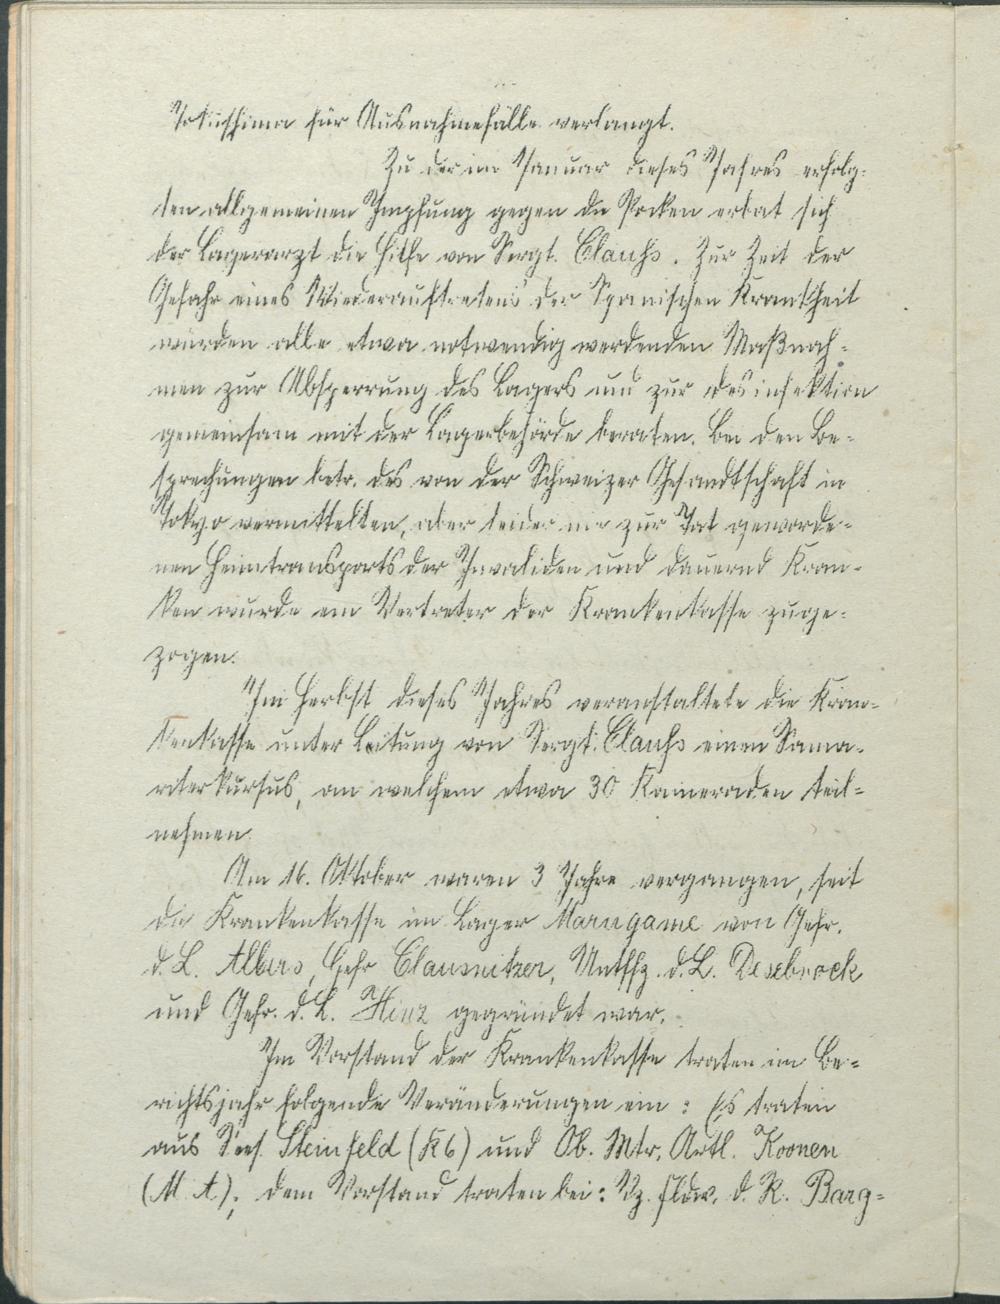 Tokushima für Ausnahmefälle verlangt.
Zu der im Januar dieses Jahres erfolg-
ten allgemeinen Impfung gegen die Pocken erbat sich
der Lagerarzt die Hilfe von Sergt. Clauss. Zur Zeit der
Gefahr eines Wiederauftretens der Spanischen Krankheit
wurden alle etwa notwendig werdenden Maßnah-
men zur Absperrung des Lagers und zur Desinfektion
gemeinsam mit der Lagerbehörde beraten. Bei den Be-
sprechungen betr. des von der Schweizer Gesandtschaft in
Tokyo vermittelten, aber leider nie zur Tat geworde-
nen Heimtransports der Invaliden und dauernd Kran-
ken wurde ein Vertreter der Krankenkasse zuge-
zogen.
Im Herbst dieses Jahres veranstaltete die Kran-
kenkasse unter Leitung von Sergt. Clauss einen Sama-
riterkursus, an welchem etwa 30 Kameraden teil-
nehmen.
Am 16. Oktober waren 3 Jahre vergangen, seit
die Krankenkasse im Lager Marugame von Gefr.
d. L. Albers, Gefr. Clausnitzer, Untffz. d. L. Desebrock
und Gefr. d. L. Hinz gegründet war.
Im Vorstand der Krankenkasse traten im Be-
richtsjahr folgende Veränderungen ein: Es traten
aus Sees. Steinfeld (K6) und Ob. Mtr. Artl. Koonen
(M. A.); dem Vorstand traten bei: Vz. fldw. d. R. Barg-